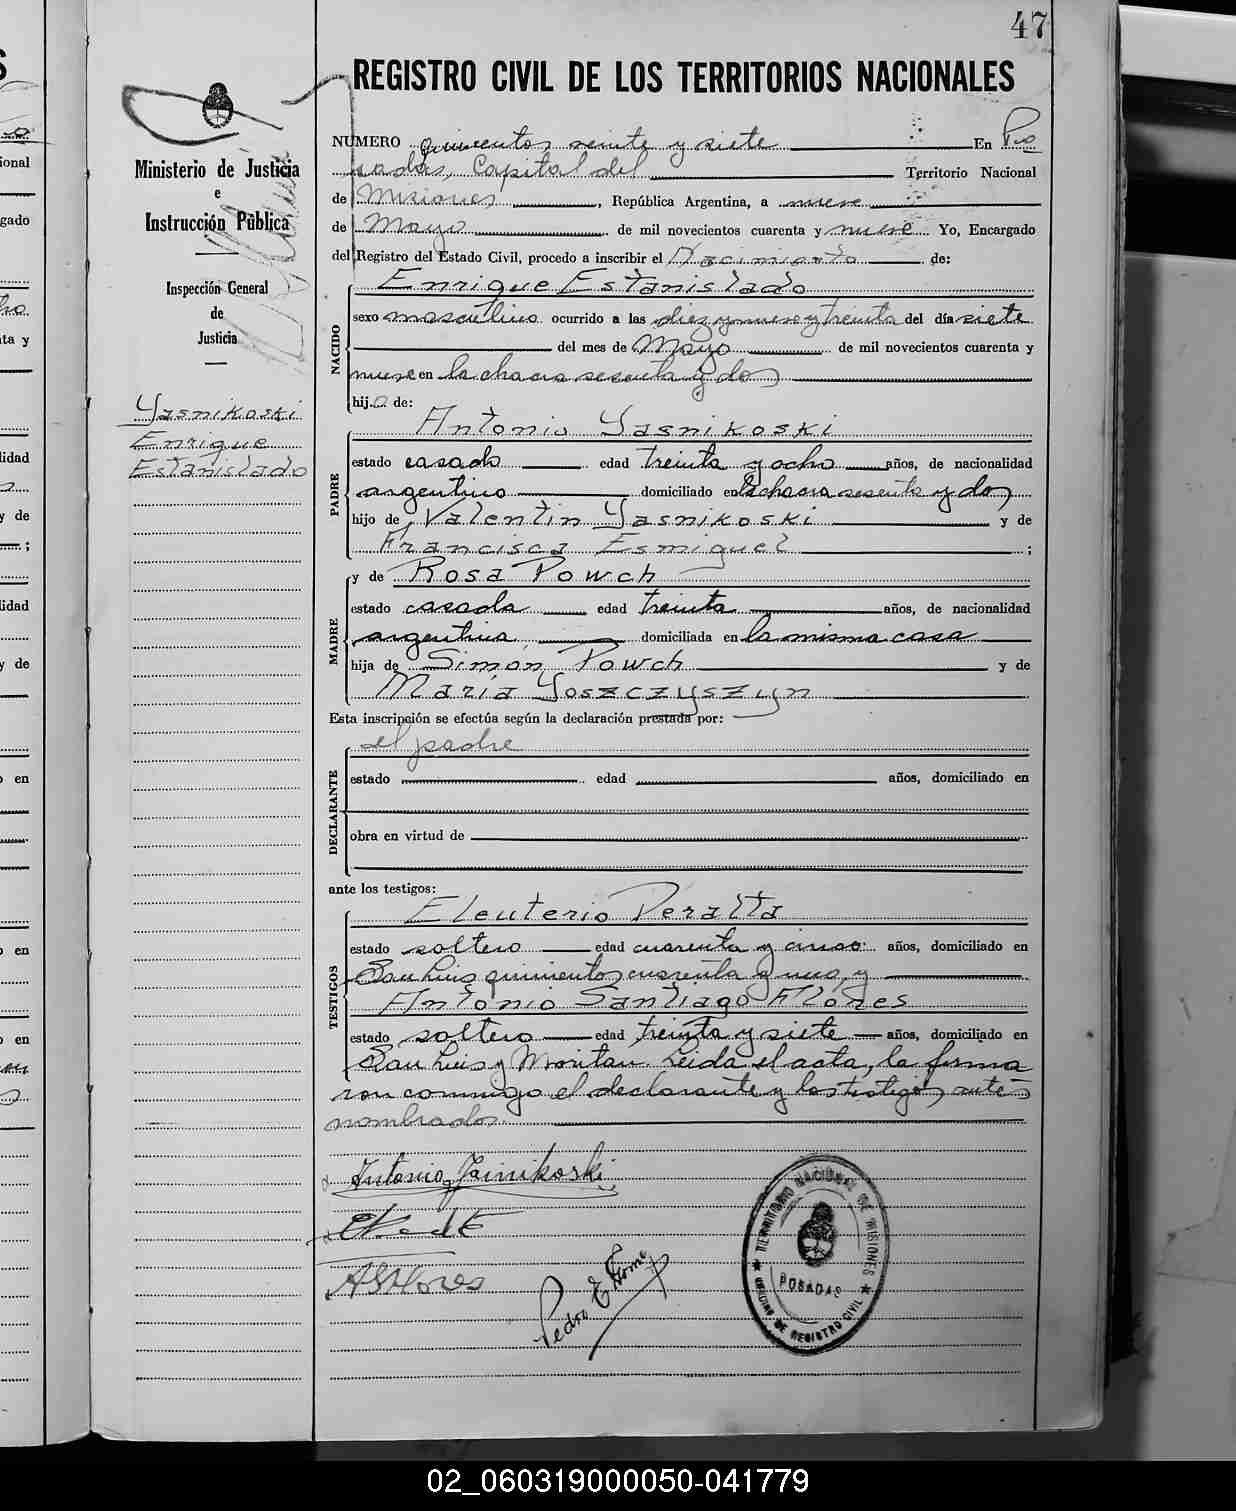 47
REGISTRO CIVIL DE LOS TERRITORIOS NACIONALES
Ministerio de Justicia
e
Instrucción Pública
Inspección General
de
Justicia
Yasnikoski
Enrique
Estanislado
NUMERO quinientos veinte y siete En Po
sadas, Capital del Territorio Nacional
de Misiones, República Argentina, a nueve
de Mayo de mil novecientos cuarenta y nueve Yo, Encargado
del Registro del Estado Civil, procedo a inscribir el Nacimiento de:
NACIDO
Enrique Estanislado
sexo masculino ocurrido a las diez y nueve y treinta del día siete
del mes de Mayo de mil novecientos cuarenta y
nueve en la chacra sesenta y dos
hijo de:
PADRE
Antonio Yasnikoski
estado casado edad treinta y ocho años, de nacionalidad
argentino domiciliado en la chacra sesenta y dos
hijo de Valentin Yasnikoski y de
Francisca Esmiguel ;
MADRE
y de Rosa Powch
estado casada edad treinta años, de nacionalidad
argentina domiciliada en la misma casa
hija de Simón Powch y de
María Yoszczyszyn
Esta inscripción se efectúa según la declaración prestada por:
DECLARANTE
el padre
estado edad años, domiciliado en
obra en virtud de
ante los testigos:
TESTIGOS
Eleuterio Peralta
estado soltero edad cuarenta y cinco años, domiciliado en
San Luis quinientos cuarenta y uno, y
Antonio Santiago Flores
estado soltero edad treinta y siete años, domiciliado en
San Luis y Moritan. Leida el acta, la firma
ron conmigo el declarante y los testigos ante
nombrados
Antonio Jasnikoski
ASFlores
Pedro E
TERRITORIO NACIONAL DE MISIONES
POSADAS
OFICINA DE REGISTRO CIVIL
02_060319000050-041779